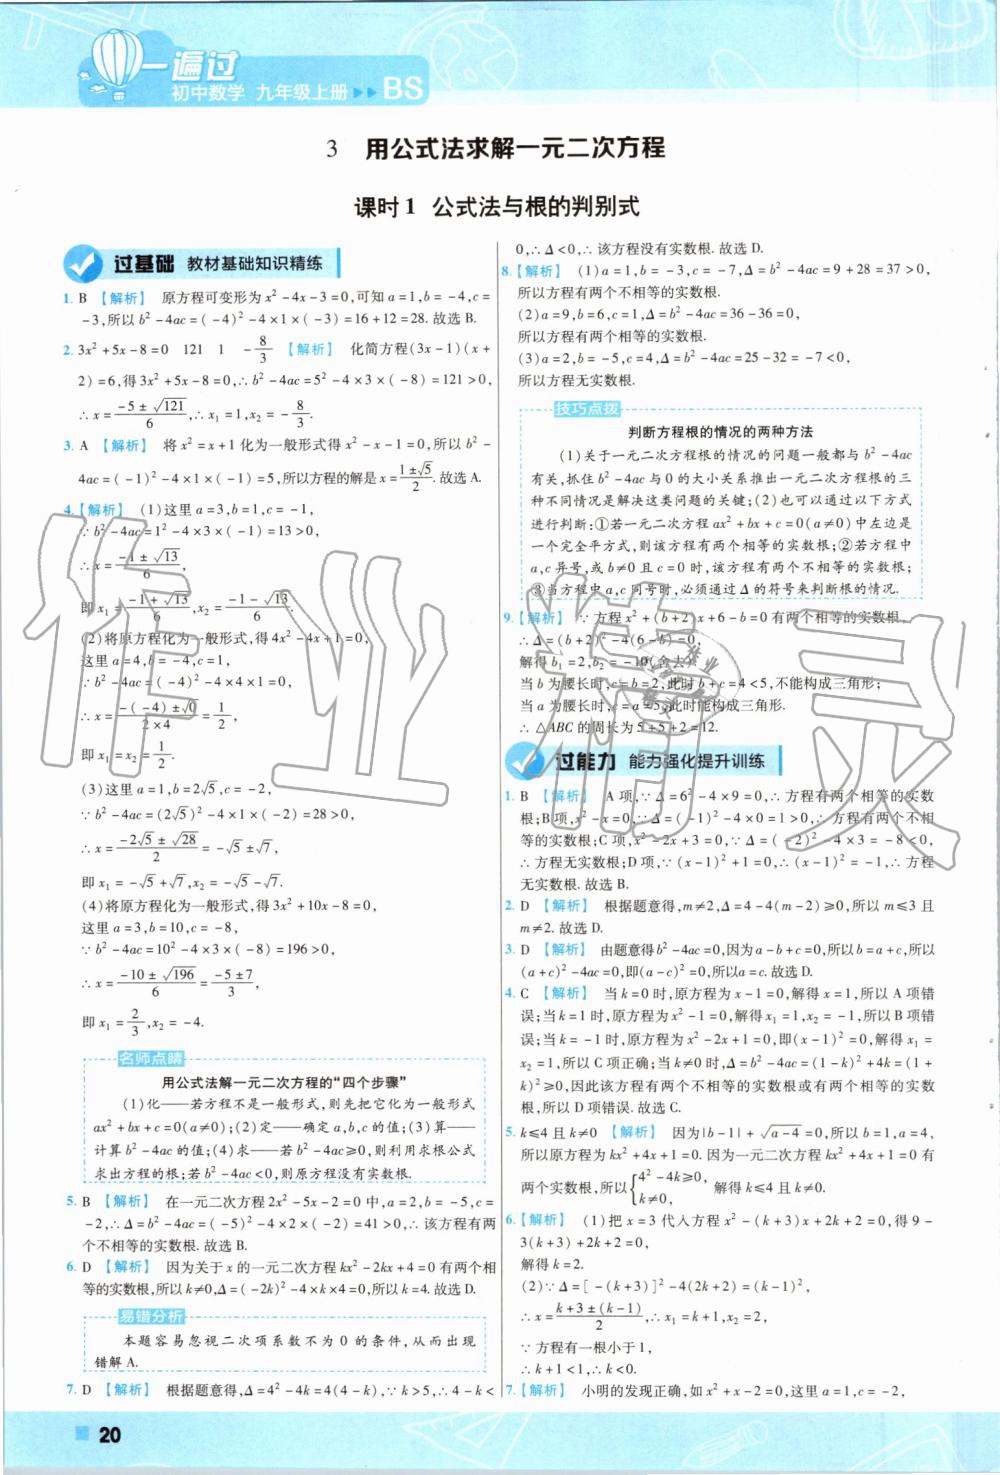 一遍过
初中数学 九年级上册 ▶▶ BS
3 用公式法求解一元二次方程
课时1 公式法与根的判别式
过基础 教材基础知识精练
1. B 【解析】 原方程可变形为x²-4x-3=0,可知a=1,b=-4,c=
-3,所以b²-4ac=(-4)²-4×1×(-3)=16+12=28.故选B.
2. 3x²+5x-8=0 121 1 -8/3 【解析】 化简方程(3x-1)(x+
2)=6,得3x²+5x-8=0,∴b²-4ac=5²-4×3×(-8)=121>0,
∴x=(-5±√121)/6,∴x₁=1,x₂=-8/3.
3. A 【解析】 将x²=x+1化为一般形式得x²-x-1=0,所以b²-
4ac=(-1)²-4×1×(-1)=5,所以方程的解是x=(1±√5)/2.故选A.
4.【解析】 (1)这里a=3,b=1,c=-1,
∵b²-4ac=1²-4×3×(-1)=13>0,
∴x=(-1±√13)/6,
即x₁=(-1+√13)/6,x₂=(-1-√13)/6.
(2)将原方程化为一般形式,得4x²-4x+1=0,
这里a=4,b=-4,c=1,
∵b²-4ac=(-4)²-4×4×1=0,
∴x=(-(-4)±√0)/(2×4)=1/2,
即x₁=x₂=1/2.
(3)这里a=1,b=2√5,c=-2,
∵b²-4ac=(2√5)²-4×1×(-2)=28>0,
∴x=(-2√5±√28)/2=-√5±√7,
即x₁=-√5+√7,x₂=-√5-√7.
(4)将原方程化为一般形式,得3x²+10x-8=0,
这里a=3,b=10,c=-8,
∵b²-4ac=10²-4×3×(-8)=196>0,
∴x=(-10±√196)/6=(-5±7)/3,
即x₁=2/3,x₂=-4.
名师点睛
用公式法解一元二次方程的“四个步骤”
(1)化——若方程不是一般形式,则先把它化为一般形式
ax²+bx+c=0(a≠0);(2)定——确定a,b,c的值;(3)算——
计算b²-4ac的值;(4)求——若b²-4ac≥0,则利用求根公式
求出方程的根;若b²-4ac<0,则原方程没有实数根.
5. B 【解析】 在一元二次方程2x²-5x-2=0中,a=2,b=-5,c=
-2,∴Δ=b²-4ac=(-5)²-4×2×(-2)=41>0,∴该方程有两
个不相等的实数根.故选B.
6. D 【解析】 因为关于x的一元二次方程kx²-2kx+4=0有两个相
等的实数根,所以k≠0,Δ=(-2k)²-4×k×4=0,解得k=4.故选D.
易错分析
本题容易忽视二次项系数不为0的条件,从而出现
错解A.
7. D 【解析】 根据题意得,Δ=4²-4k=4(4-k),∵k>5,∴4-k<
0,∴Δ<0,∴该方程没有实数根.故选D.
8.【解析】 (1)a=1,b=-3,c=-7,Δ=b²-4ac=9+28=37>0,
所以方程有两个不相等的实数根.
(2)a=9,b=6,c=1,Δ=b²-4ac=36-36=0,
所以方程有两个相等的实数根.
(3)a=2,b=-5,c=4,Δ=b²-4ac=25-32=-7<0,
所以方程无实数根.
技巧点拨
判断方程根的情况的两种方法
(1)关于一元二次方程根的情况的问题一般都与b²-4ac
有关,抓住b²-4ac与0的大小关系推出一元二次方程根的三
种不同情况是解决这类问题的关键;(2)也可以通过以下方式
进行判断:①若一元二次方程ax²+bx+c=0(a≠0)中左边是
一个完全平方式,则该方程有两个相等的实数根;②若方程中
a,c异号,或b≠0且c=0时,该方程有两个不相等的实数根;
③当方程中a,c同号时,必须通过Δ的符号来判断根的情况.
9.【解析】 ∵方程x²+(b+2)x+6-b=0有两个相等的实数根,
∴Δ=(b+2)²-4(6-b)=0,
解得b₁=2,b₂=-10(舍去).
当b为腰长时,c=b=2,此时b+c=4<5,不能构成三角形;
当a为腰长时,c=a=5,此时能构成三角形.
∴△ABC的周长为5+5+2=12.
过能力 能力强化提升训练
1. B 【解析】 A项,∵Δ=6²-4×9=0,∴方程有两个相等的实数
根;B项,x²-x=0,∵Δ=(-1)²-4×0=1>0,∴方程有两个不相
等的实数根;C项,x²-2x+3=0,∵Δ=(-2)²-4×3=-8<0,
∴方程无实数根;D项,∵(x-1)²+1=0,∴(x-1)²=-1,∴方程
无实数根.故选B.
2. D 【解析】 根据题意得,m≠2,Δ=4-4(m-2)≥0,所以m≤3且
m≠2.故选D.
3. D 【解析】 由题意得b²-4ac=0,因为a-b+c=0,所以b=a+c,所以
(a+c)²-4ac=0,即(a-c)²=0,所以a=c.故选D.
4. C 【解析】 当k=0时,原方程为x-1=0,解得x=1,所以A项错
误;当k=1时,原方程为x²-1=0,解得x₁=1,x₂=-1,所以B项错
误;当k=-1时,原方程为x²-2x+1=0,即(x-1)²=0,解得x₁=
x₂=1,所以C项正确;当k≠0时,Δ=b²-4ac=(1-k)²+4k=(1+
k)²≥0,因此该方程有两个不相等的实数根或有两个相等的实数
根,所以D项错误.故选C.
5. k≤4且k≠0 【解析】 因为|b-1|+√(a-4)=0,所以b=1,a=4,
所以原方程为kx²+4x+1=0.因为一元二次方程kx²+4x+1=0有
两个实数根,所以{4²-4k≥0, k≠0, 解得k≤4且k≠0.
6.【解析】 (1)把x=3代入方程x²-(k+3)x+2k+2=0,得9-
3(k+3)+2k+2=0,
解得k=2.
(2)∵Δ=[-(k+3)]²-4(2k+2)=(k-1)²,
∴x=(k+3±(k-1))/2,∴x₁=k+1,x₂=2.
∵方程有一根小于1,
∴k+1<1,∴k<0.
7.【解析】 小明的发现正确,如x²+x-2=0,这里a=1,c=-2,
20
作业精灵